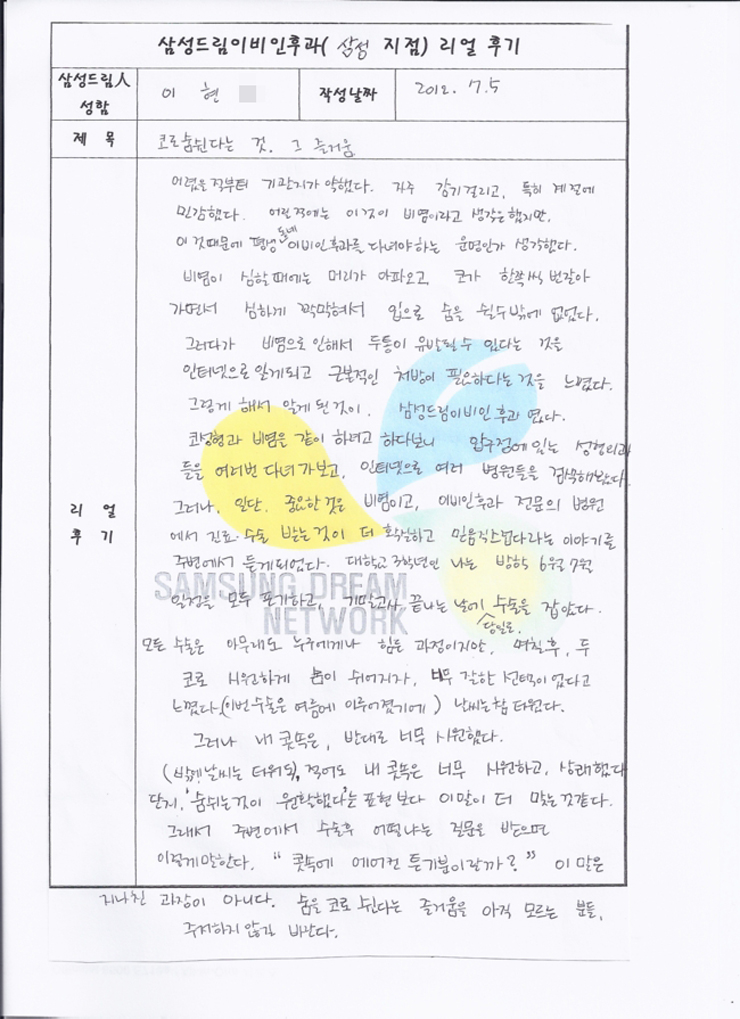 삼성드림이비인후과( 삼성 지점) 리얼 후기
삼성드림人
성함
이 현
작성날짜
2012. 7.5
제 목
코로숨쉰다는 것. 그 즐거움
리 얼
후 기
어렸을적부터 기관지가 약했다. 자주 감기걸리고, 특히 계절에
민감했다. 어린적에는 이것이 비염이라고 생각은 했지만,
이것때문에 평생 동네 이비인후과를 다녀야하는 운명인가 생각했다.
비염이 심할 때에는 머리가 아파오고, 코가 한쪽씩 번갈아
가면서 심하게 꽉막혀서 입으로 숨을 쉴수밖에 없었다.
그러다가 비염으로 인해서 두통이 유발될 수 있다는 것을
인터넷으로 알게되고 근본적인 처방이 필요하다는 것을 느꼈다.
그렇게 해서 알게 된것이, 삼성드림이비인후과 였다.
코성형과 비염을 같이 하려고 하다보니 압구정에 있는 성형외과
들을 여러번 다녀가보고, 인터넷으로 여러 병원들을 검색해봤다.
그러나, 일단, 중요한것은 비염이고, 이비인후과 전문의 병원
에서 진료·수술 받는것이 더 확실하고 믿음직스럽다라는 이야기를
주변에서 듣게되었다. 대학교 3학년인 나는 방학 6월 7월
일정을 모두 포기하고, 기말고사 끝나는 날에 당일로 수술을 잡았다.
모든 수술은 아무래도 누구에게나 힘든 과정이지만, 며칠후, 두
코로 시원하게 숨이 쉬어지자, 너무 잘한 선택이었다고
느꼈다.(이번수술은 여름에 이루어졌기에) 날씨는참 더웠다.
그러나 내 콧뚝은, 반대로 너무 시원했다.
(밖에 날씨는 더워도), 적어도 내 콧뚝은 너무 시원하고, 상쾌했다
단지, '숨쉬는것이 원활했다'는 표현보다 이말이 더 맞는것같다.
그래서 주변에서 수술후 어떻냐는 질문을 받으면
이렇게말한다. "콧뚝에 에어컨 튼기분이랄까?" 이 말은
지나친 과장이 아니다. 숨을 코로 쉰다는 즐거움을 아직 모르는 분들,
주저하지 않길 바란다.
SAMSUNG DREAM
NETWORK